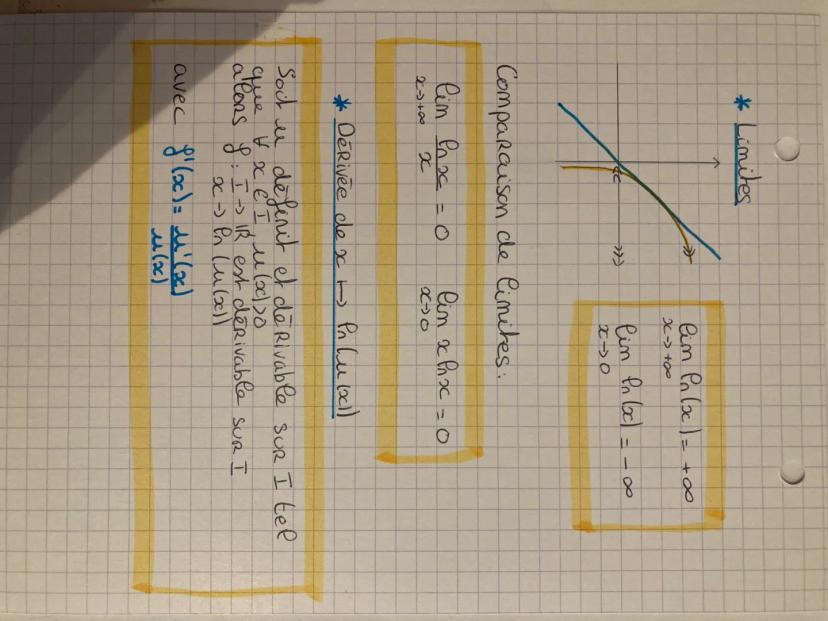 * Limites
lim ln(x) = +∞
x→+∞
lim ln(x) = -∞
x→0
Comparaison de limites :
lim lnx/x = 0
x→+∞
lim x lnx = 0
x→0
* Dérivée de x ↦ ln(u(x))
Soit u définit et dérivable sur I tel
que ∀ x ∈ I, u(x)>0
alors f : I → ℝ est dérivable sur I
x → ln(u(x))
avec f'(x) = u'(x)/u(x)